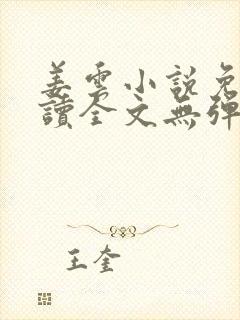 姜雲小說免
讀全文無彈
王奎